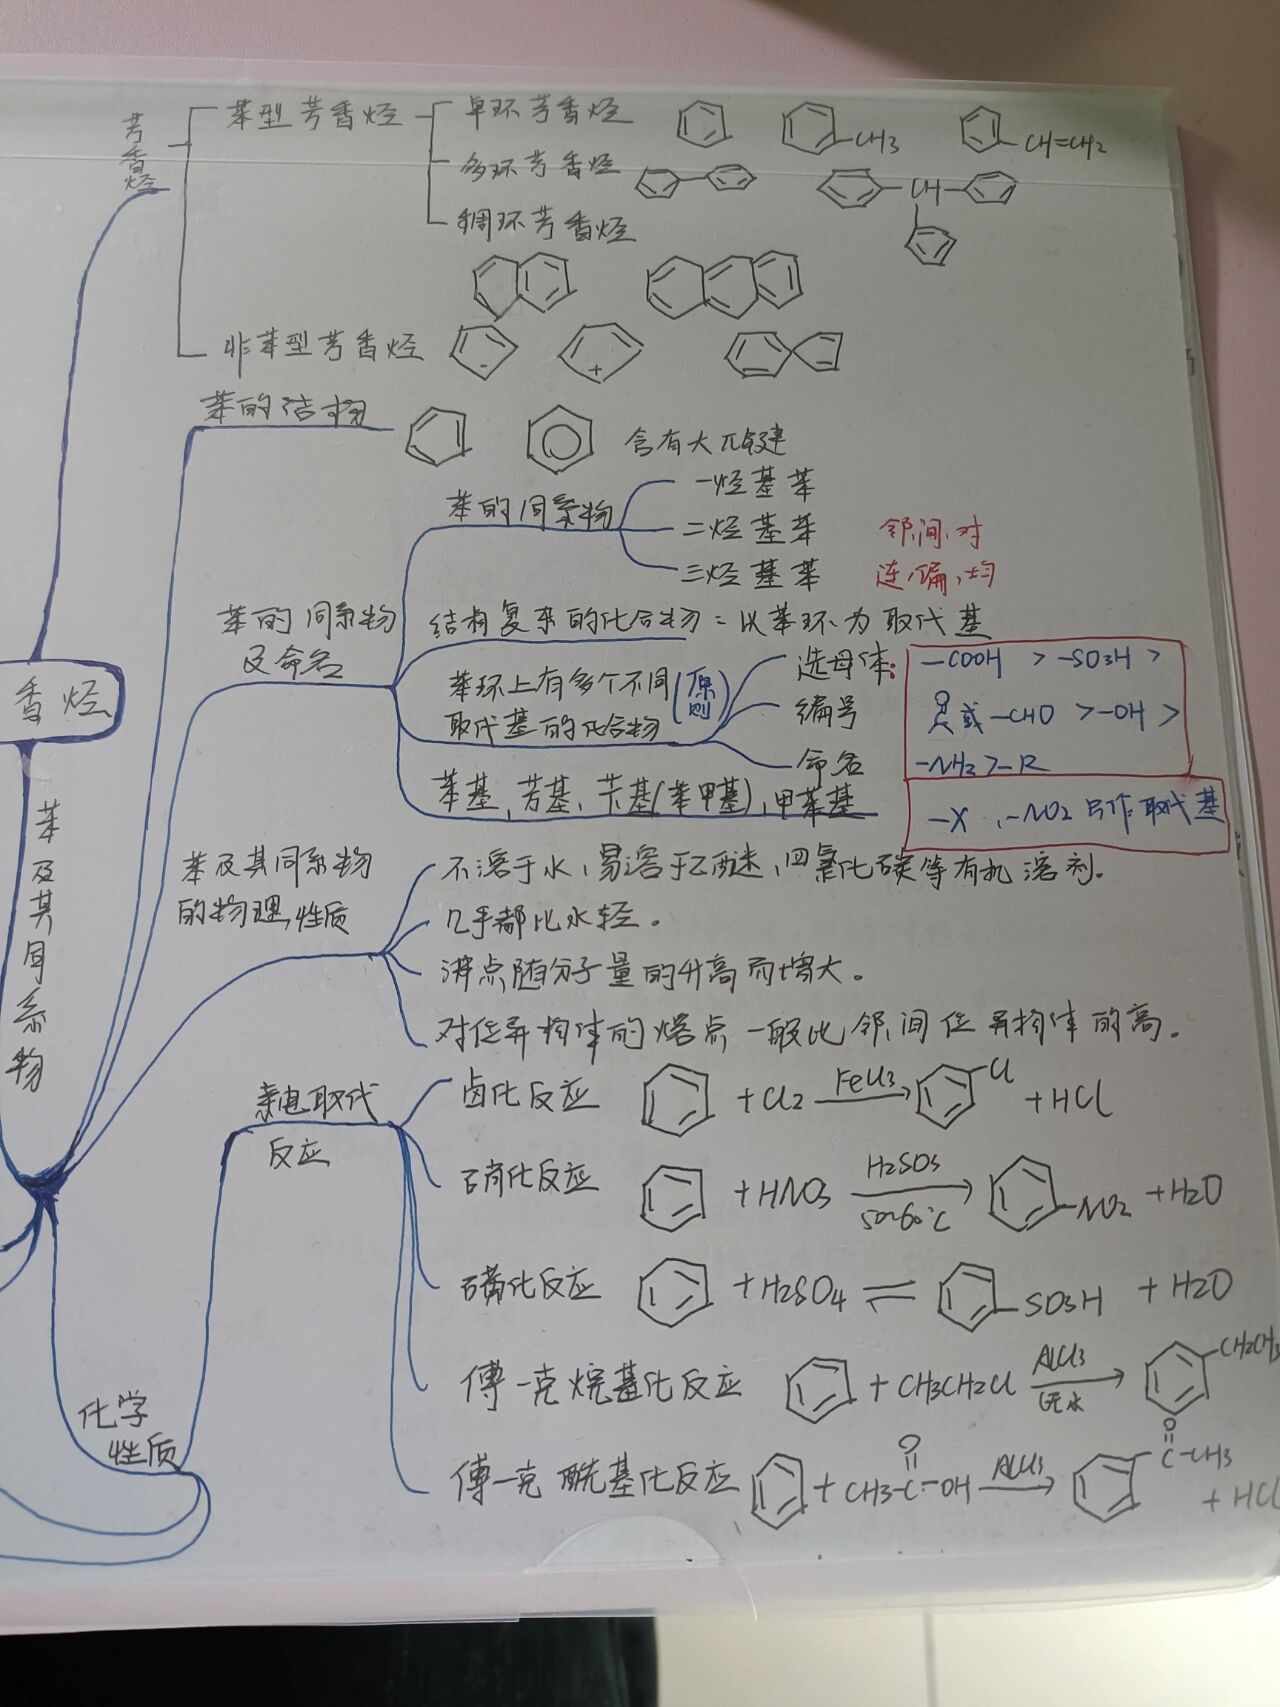 芳香烃
苯型芳香烃
单环芳香烃
CH3
CH=CH2
多环芳香烃
CH
稠环芳香烃
非苯型芳香烃
-
+
苯的结构
含有大π键
苯的同系物
及命名
苯的同系物
一烃基苯
二烃基苯 邻、间、对
三烃基苯 连、偏、均
结构复杂的化合物：以苯环为取代基
苯环上有多个不同
取代基的化合物
(原则)
选母体：
编号
命名
-COOH > -SO3H >
或 -CHO > -OH >
-NH2 > -R
-X、-NO2只作取代基
苯基、芳基、苄基(苯甲基)、甲苯基
香烃
苯及其同系物
苯及其同系物
的物理性质
不溶于水，易溶于乙醚，四氯化碳等有机溶剂。
几乎都比水轻。
沸点随分子量的升高而增大。
对位异构体的熔点一般比邻、间位异构体的高。
化学
性质
亲电取代
反应
卤化反应 + Cl2 FeCl3 Cl + HCl
硝化反应 + HNO3 H2SO3 50~60℃ NO2 + H2O
磺化反应 + H2SO4 ⇌ SO3H + H2O
傅-克烷基化反应 + CH3CH2Cl AlCl3 无水 CH2CH3
傅-克酰基化反应 + CH3-C-OH O AlCl3 O C-CH3 + HCl